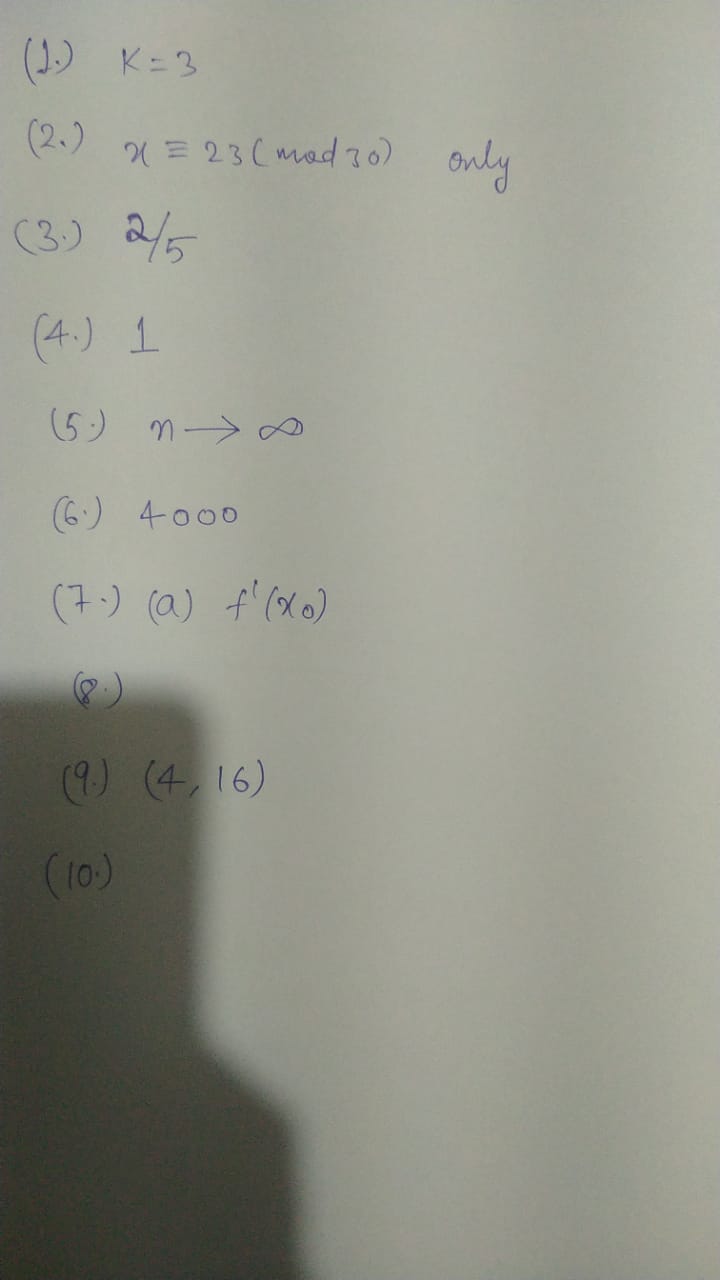 (1.) K = 3
(2.) x ≡ 23 (mod 30) only
(3.) 2/5
(4.) 1
(5.) n → ∞
(6.) 4000
(7.) (a) f'(x0)
(8.)
(9.) (4, 16)
(10.)